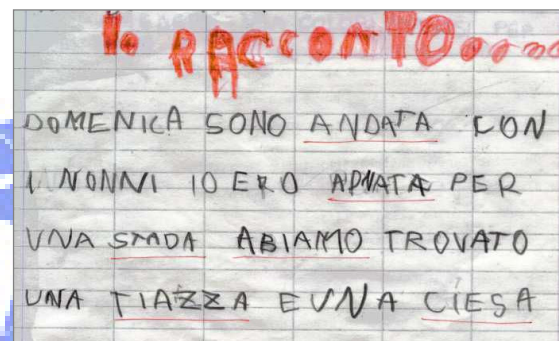 Io RACCONTO....
DOMENICA SONO ANDATA CON
I NONNI IO ERO ADNATA PER
UNA STADA ABIAMO TROVATO
UNA TIAZZA E UNA CIESA